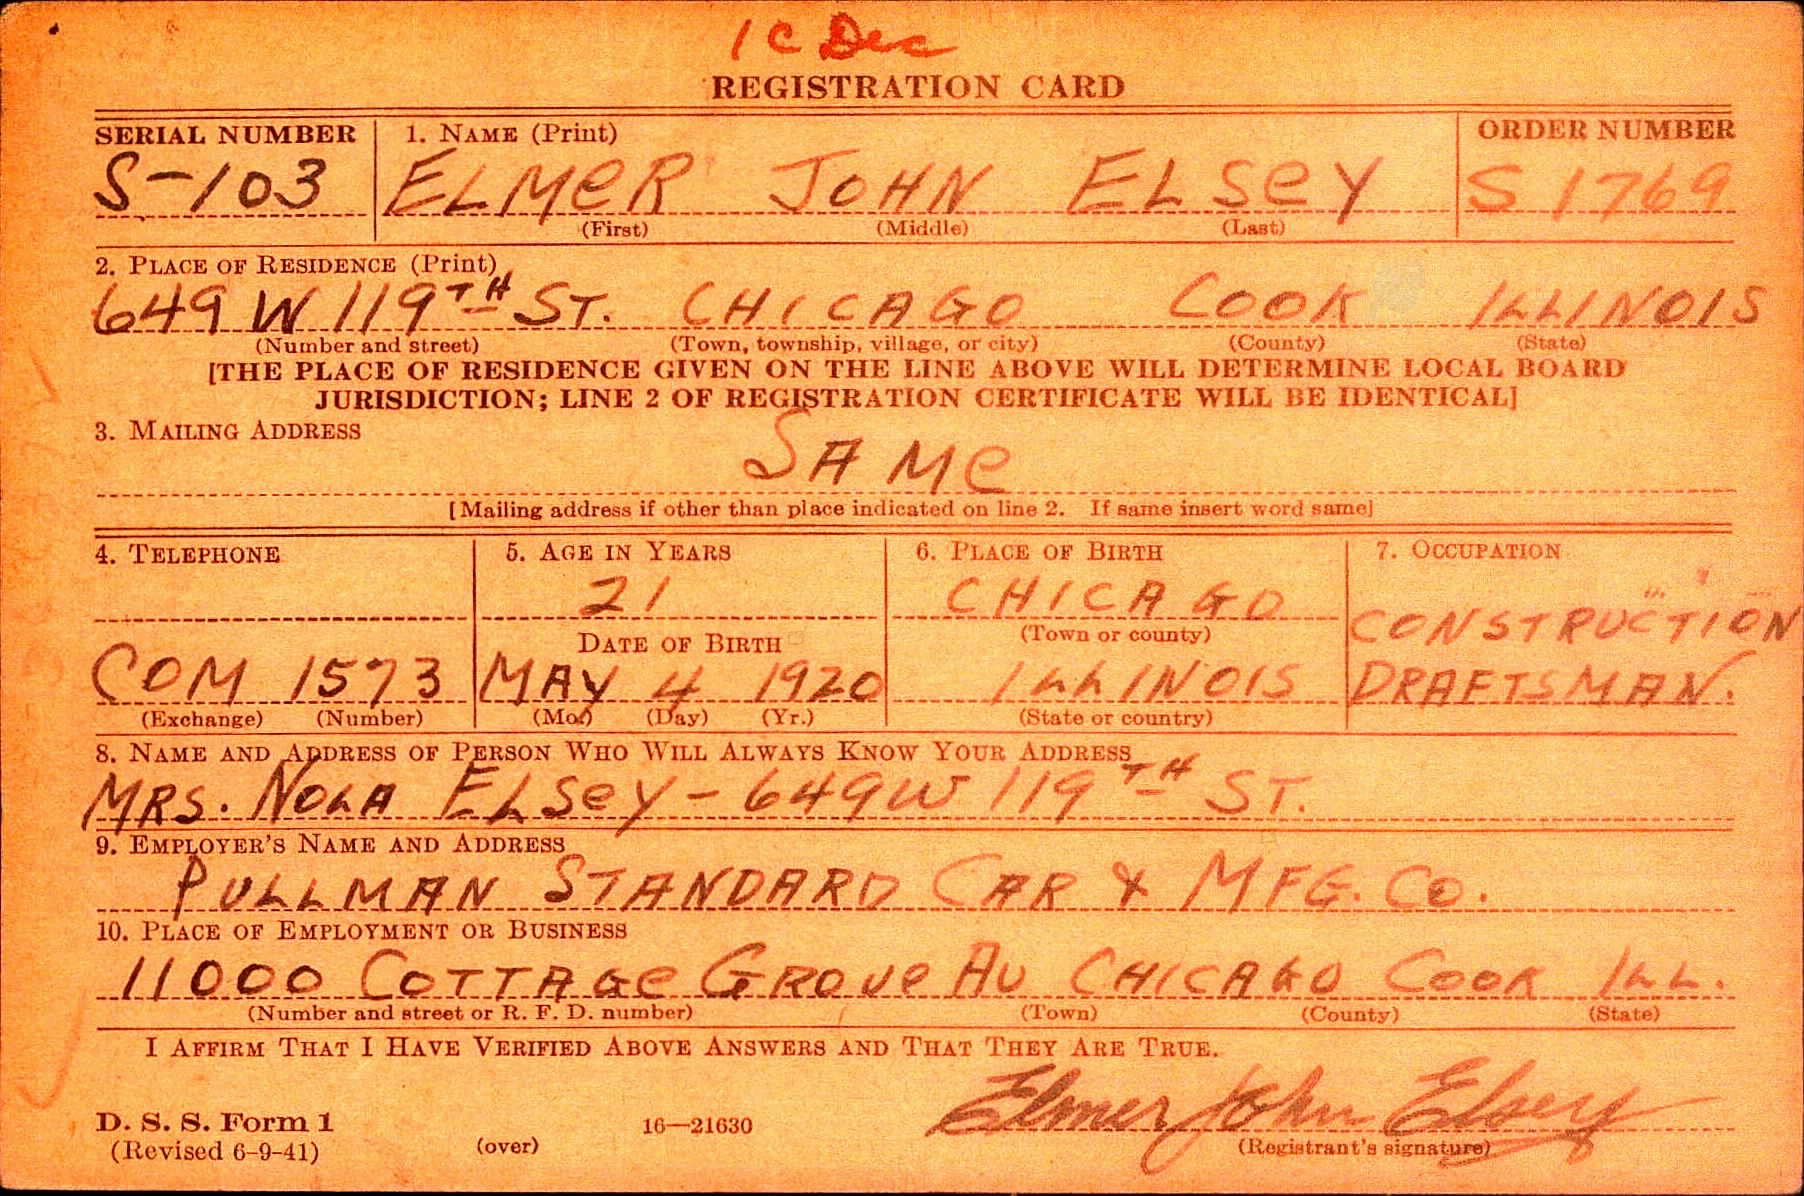 1C Dec
REGISTRATION CARD
SERIAL NUMBER 1. NAME (Print) ORDER NUMBER
S-103 ELMER JOHN ELSEY S 1769
(First) (Middle) (Last)
2. PLACE OF RESIDENCE (Print)
649 W 119TH ST. CHICAGO COOK ILLINOIS
(Number and street) (Town, township, village, or city) (County) (State)
[THE PLACE OF RESIDENCE GIVEN ON THE LINE ABOVE WILL DETERMINE LOCAL BOARD
JURISDICTION; LINE 2 OF REGISTRATION CERTIFICATE WILL BE IDENTICAL]
3. MAILING ADDRESS
SAME
[Mailing address if other than place indicated on line 2. If same insert word same]
4. TELEPHONE 5. AGE IN YEARS 6. PLACE OF BIRTH 7. OCCUPATION
21 CHICAGO CONSTRUCTION
DATE OF BIRTH (Town or county)
COM 1573 MAY 4 1920 ILLINOIS DRAFTSMAN.
(Exchange) (Number) (Mo.) (Day) (Yr.) (State or country)
8. NAME AND ADDRESS OF PERSON WHO WILL ALWAYS KNOW YOUR ADDRESS
MRS. NOLA ELSEY - 649 W 119TH ST.
9. EMPLOYER'S NAME AND ADDRESS
PULLMAN STANDARD CAR & MFG. CO.
10. PLACE OF EMPLOYMENT OR BUSINESS
11000 COTTAGE GROVE AV CHICAGO COOK ILL.
(Number and street or R. F. D. number) (Town) (County) (State)
I AFFIRM THAT I HAVE VERIFIED ABOVE ANSWERS AND THAT THEY ARE TRUE.
Elmer John Elsey
D. S. S. Form 1 16—21630
(Revised 6-9-41) (over) (Registrant's signature)